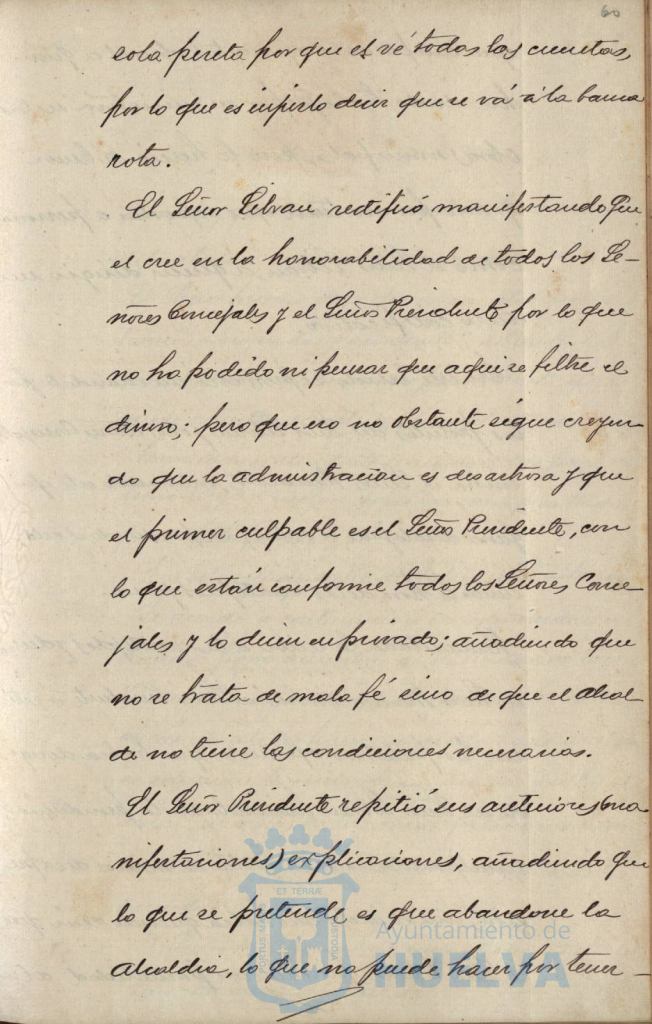 60
sola peseta por que el vé todas las cuentas,
por lo que es injusto decir que se vá á la banca
rota.
El Señor Libran rectificó manifestando que
el cree en la honorabilidad de todos los Se-
ñores Concejales y el Señor Presidente por lo que
no ha podido ni pensar que aqui se filtre el
dinero; pero que eso no obstante sigue creyen-
do que la administracion es desastrosa y que
el primer culpable es el Señor Presidente, con
lo que están conforme todos los Señores Conce-
jales y lo dicen en privado; añadiendo que
no se trata de mala fé sino de que el Alcal-
de no tiene las condiciones necesarias.
El Señor Presidente repitió sus anteriores (ma
nifestaciones) explicaciones, añadiendo que
lo que se pretende es que abandone la
Alcaldia, lo que no puede hacer por tener-
ET TERRÆ
PORTUS MARIS
CUSTODIA
Ayuntamiento de
HUELVA